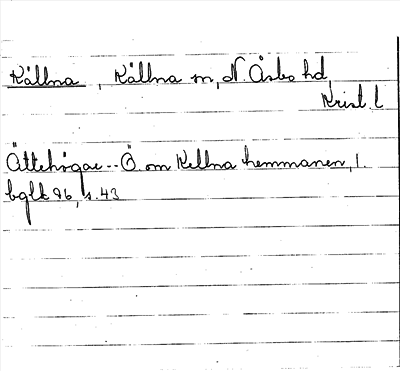 Källna, Källna sn, N. Åsbo hd,
Krist. l
Ättehögar -- Ö. om Kellna hemmanen, 1.
bglt 96, s. 43